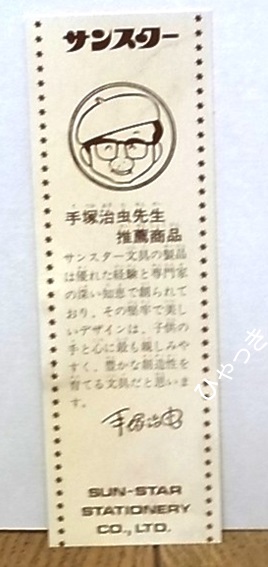 サンスター
手塚治虫先生
推薦商品
サンスター文具の製品
は優れた経験と専門家
の深い知恵で創られて
おり、その堅牢で美し
いデザインは、子供の
手と心に最も親しみや
すく、豊かな創造性を
育てる文具だと思いま
す。
手塚治虫
SUN-STAR
STATIONERY
CO., LTD.
ひやつき